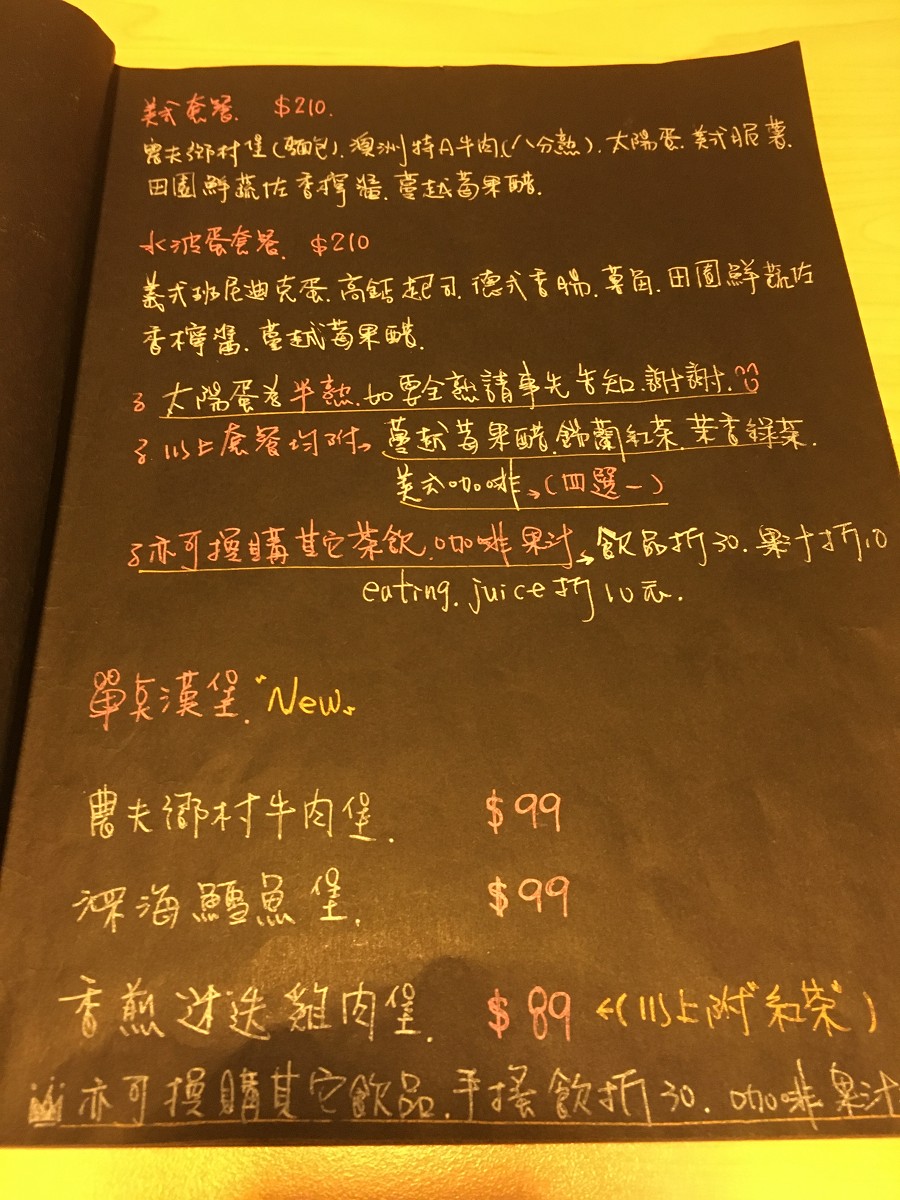 美式套餐. $210.
農夫鄉村堡(麵包).澳洲特A牛肉.(八分熟).太陽蛋.美式脆薯.
田園鮮蔬佐香檸醬.蔓越莓果醋.
水波蛋套餐. $210
義式班尼迪克蛋.高鈣起司.德式香腸.薯角.田園鮮蔬佐
香檸醬.蔓越莓果醋.
太陽蛋為半熟.如要全熟請事先告知.謝謝.
以上套餐均附 蔓越莓果醋.錫蘭紅茶.茉香綠茶.
美式咖啡 (四選一)
亦可換購其它茶飲.咖啡果汁 飲品折30.果汁折10
eating.juice折10元.
單點漢堡."New"
農夫鄉村牛肉堡. $99
深海鱈魚堡. $99
香煎迷迭雞肉堡. $89 ←(以上附"紅茶")
亦可換購其它飲品.手搖飲折30.咖啡果汁